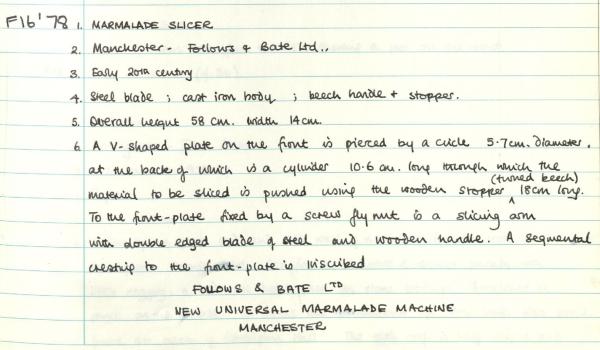 F16'78 1. MARMALADE SLICER
2. Manchester - Follows & Bate Ltd..
3. Early 20th century
4. Steel blade ; cast iron body ; beech handle + stopper.
5. Overall height 58 cm. width 14cm.
6. A V-shaped plate on the front is pierced by a circle 5.7cm. diameter,
at the back of which is a cylinder 10.6 cm. long through which the
material to be sliced is pushed using the wooden stopper (turned beech) 18cm long.
To the front-plate fixed by a screw fly nut is a slicing arm
with double edged blade of steel and wooden handle. A segmental
cresting to the front-plate is inscribed
FOLLOWS & BATE LTD
NEW UNIVERSAL MARMALADE MACHINE
MANCHESTER